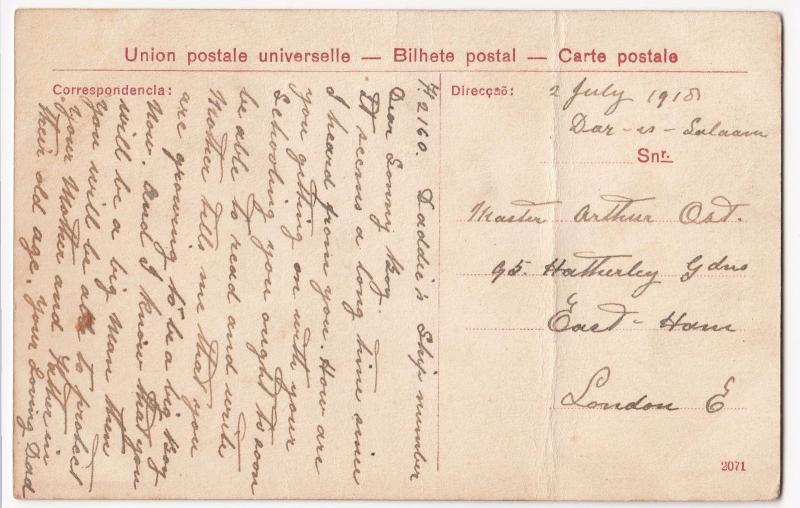 Union postale universelle — Bilhete postal — Carte postale
Correspondencia:
2160. Daddi's Ship number
Dear Sonny Boy.
It seems a long time since
I heard from you. How are
you getting on with your
Schooling you ought to soon
be able to read and write
Mother tells me that you
are growing to be a big Boy
Now. And I know that you
will be a big Man then
you will be able to protect
your Mother and Father in
their old age. Your Loving Dad
Direcção:
2 July 1918
Dar-es-Salaam
Snr.
Master Arthur Ost.
95. Hatherley Gdns
East-Ham
London E
2071